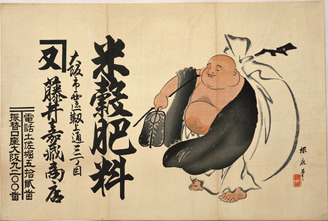 米穀肥料
大阪市西区靱上通三丁目
又
藤井商店
電話土佐堀五拾貳番
振替口座大阪九二〇〇番